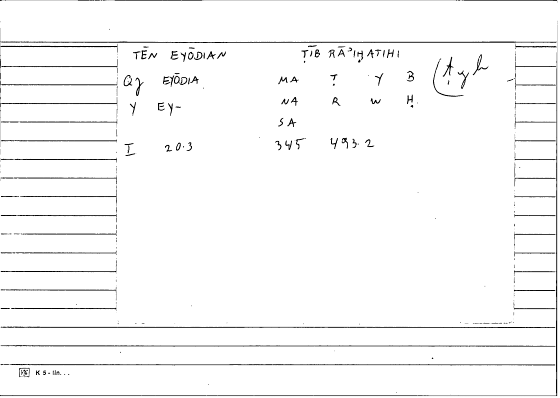 TĒN EYŌDIAN ṬĪB RĀʾIḤATIHI
Qz EYŌDIA MA Ṭ Y B
Y EY- NA R W Ḥ
SA
I 20.3 345 493.2
K 5 - lin. . .